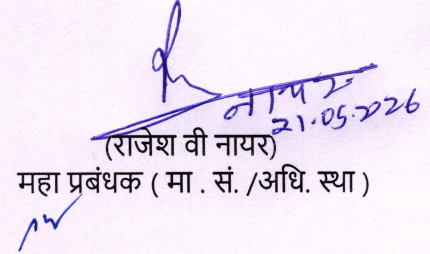 नायर
21.05.2026
(राजेश वी नायर)
महा प्रबंधक ( मा . सं. /अधि. स्था )